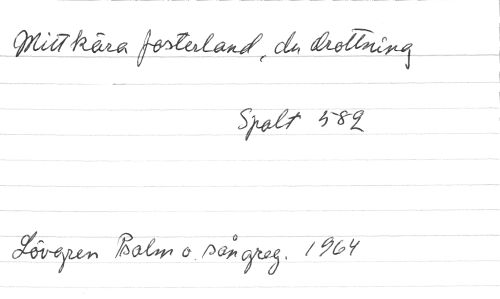 Mitt kära fosterland, du drottning
Spalt 582
Lövgren Psalm o. sångreg. 1964